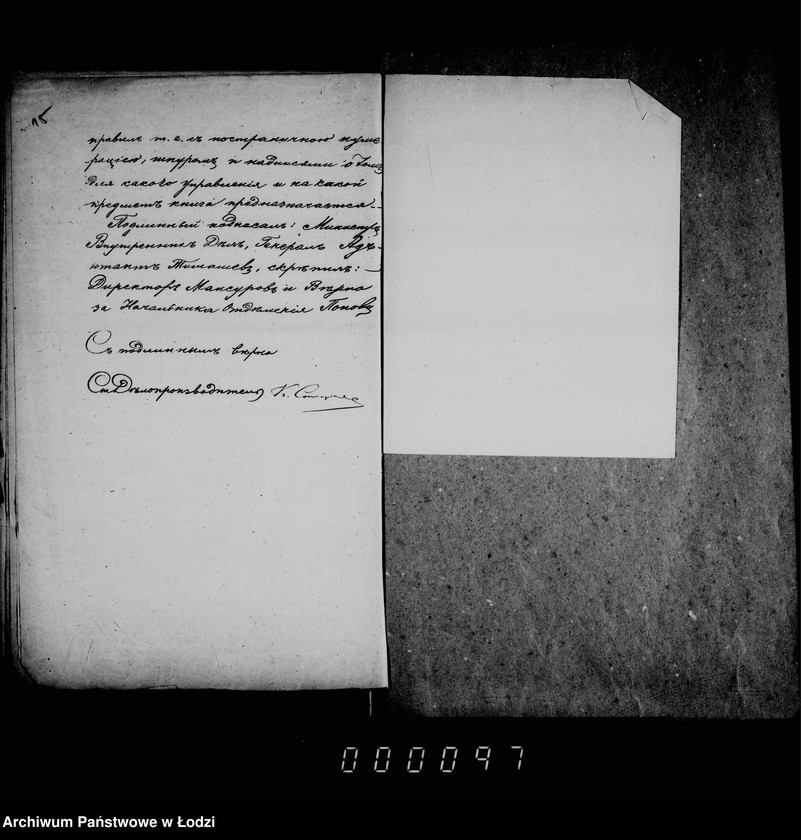 15
правилъ т. е. съ постраничною нуме
рацiею, шнуромъ и надписями о томъ
для какого Управленiя и на какой
предметъ книга предназначается. —
Подлинный подписалъ: Министръ
Внутреннихъ Дѣлъ, Генералъ Адъ-
ютантъ Тимашевъ, скрѣпилъ: —
Директоръ Мансуровъ и Вѣрно
за Начальника Отдѣленiя Поповъ
Съ подлиннымъ вѣрно
Ст Дѣлопроизводитель К.
000097
Archiwum Państwowe w Łodzi